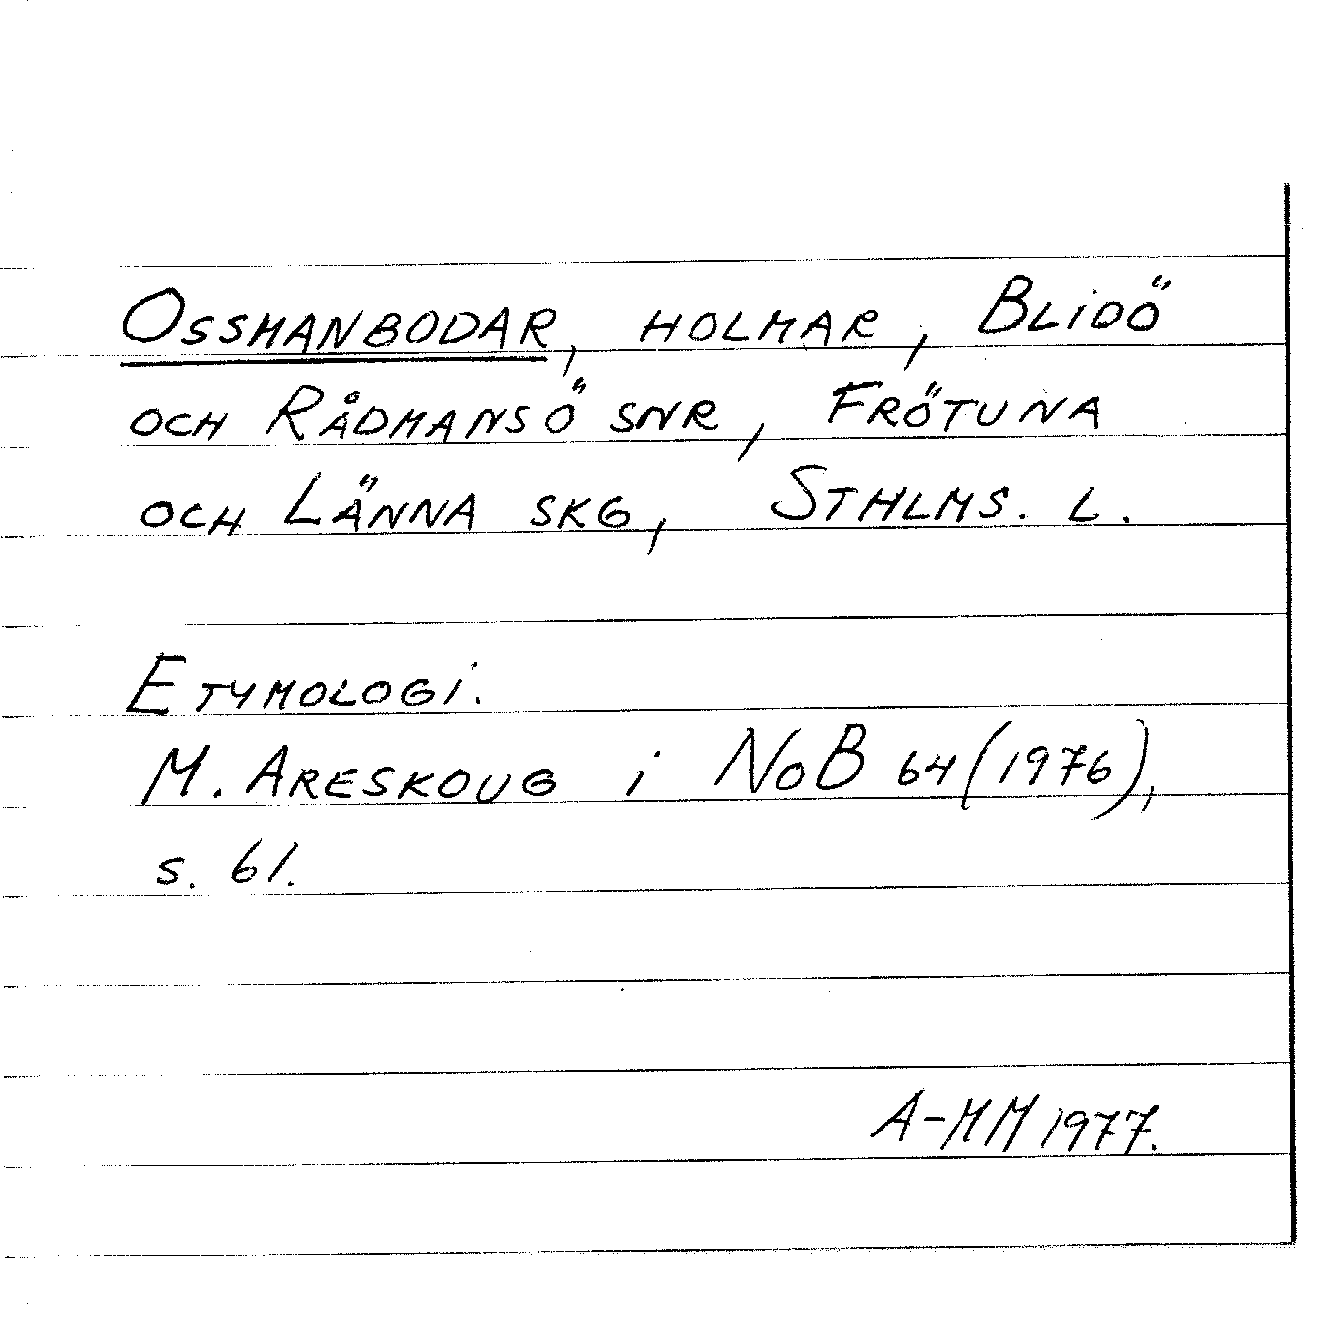 OSSMANBODAR, HOLMAR, BLIDÖ
OCH RÅDMANSÖ SNR, FRÖTUNA
OCH LÄNNA SKG, STHLMS. L.
ETYMOLOGI.
M. ARESKOUG i NoB 64 (1976),
s. 61.
A-MM 1977.